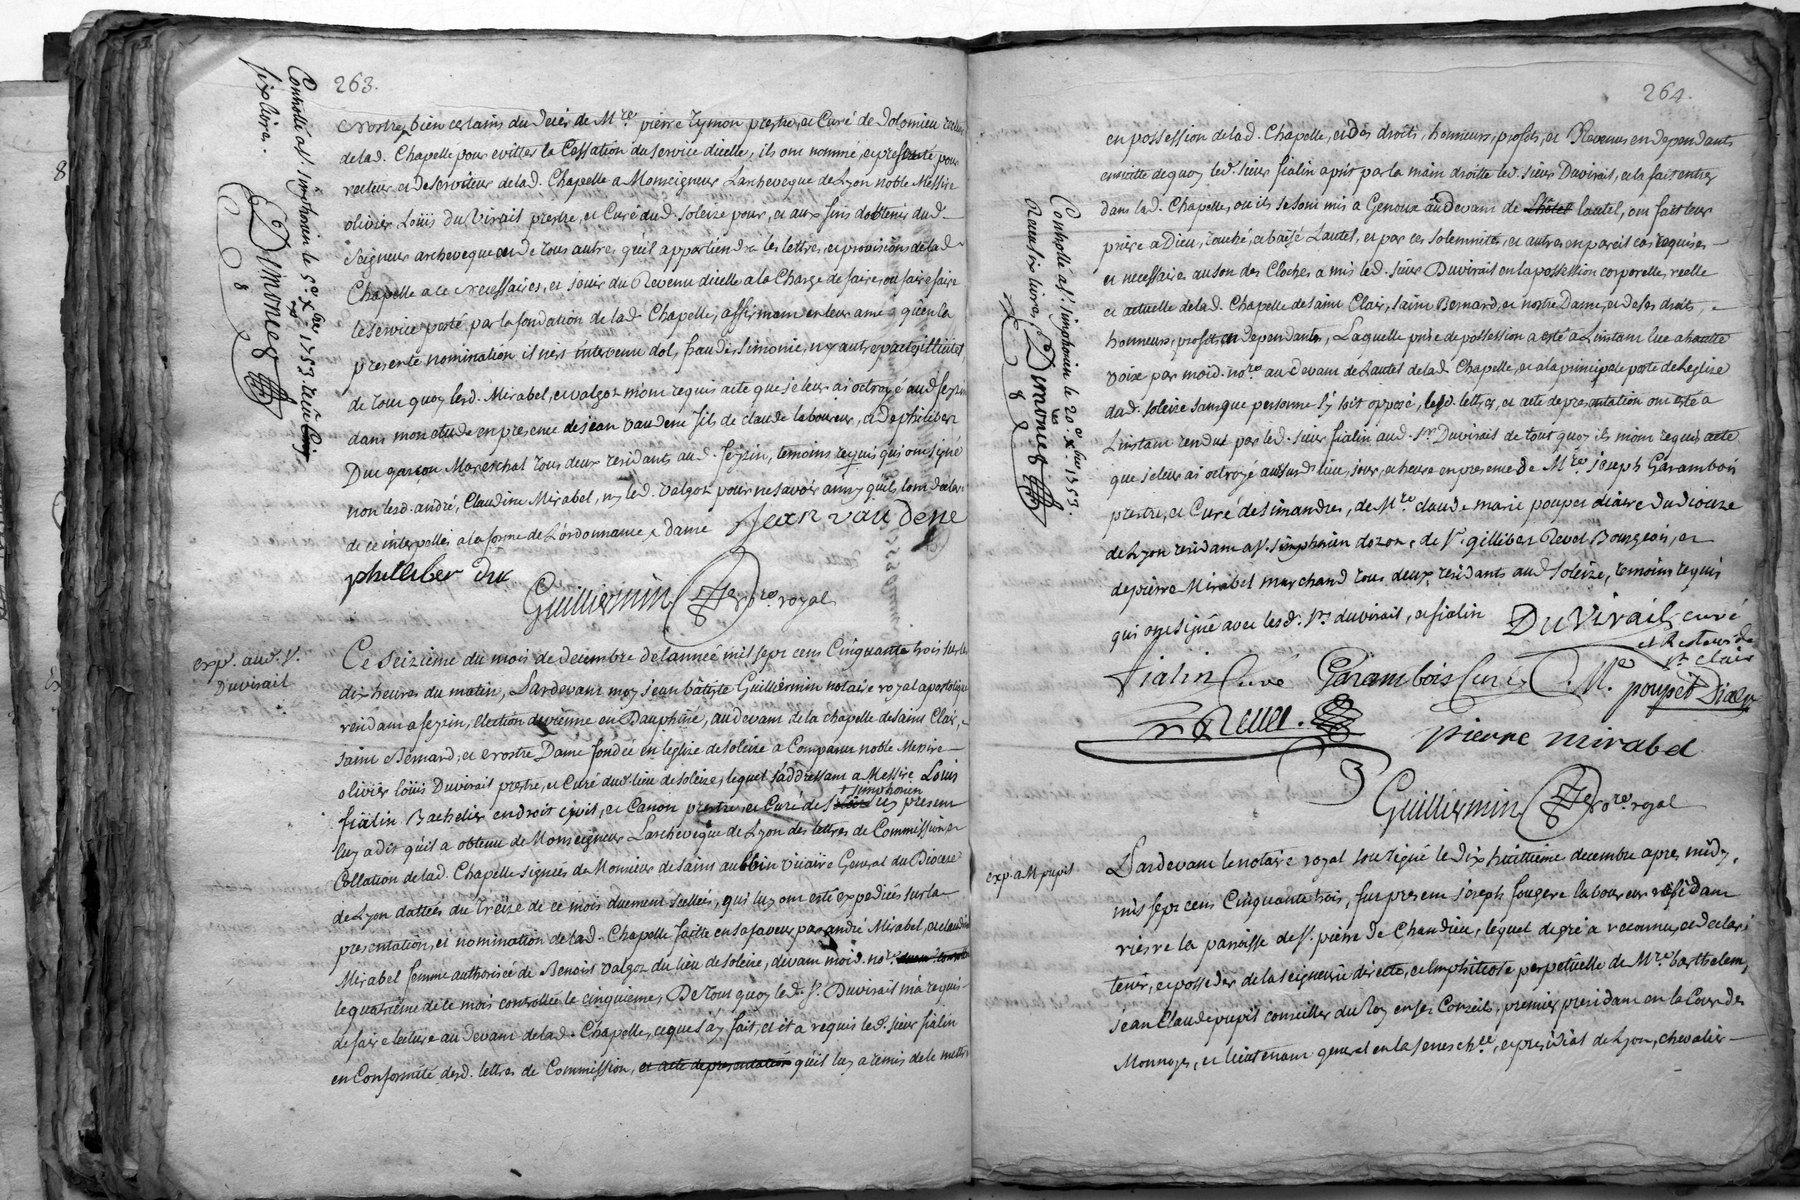 263.
Controllé a St. Simphorien le 5e. Xbre 1753. Reçu
six livres.
Dimonet
Nostre, bien certains du deces de Mre. pierre Tymon prestre, et Curé de Dolomieu
de lad. Chapelle pour evitter la Cessation du service dicelle, ils ont nommé, et presenté pour
recteur et Deserviteur de lad. Chapelle a Monseigneur Larcheveque de Lyon noble Messire
olivier Loüis Du Virail prestre, et Curé dud. Soleize pour, et aux fins d'obtenir dud.
Seigneur archeveque ou de tous autres qu'il appartiendra les lettres, et provisions de lad.
Chapelle a ce necessaires, et jouir du Revenu dicelle a la Charge de faire, ou faire faire
le service porté par la fondation de lad. Chapelle, affirmant en leur ame qu'en la
presente nomination il n'est intervenu dol, fraude, simonie, ny autre pacte illicite
de tout quoy lesd. Mirabel, et valgoz m'ont requis acte que je leur ai octroyé aud. feyzin
dans mon etude en presence de jean vaudene fils de claude laboureur, et de philibert
Duc garçon Mareschal tous deux residants aud. feyzin, temoins requis qui ont signé
non lesd. andré, Claudine Mirabel, ny led. valgoz pour ne savoir ainsy qu'ils l'ont declaré
de ce interpellés a la forme de L'ordonnance, dame Jean vaudene
philliber duc
Guilliermin no.re royal
exp. aud. Sr.
Duvirail
Ce seizieme du mois de decembre de lannée mil sept cent Cinquante trois sur les
dix heures du matin, Pardevant moy jean bâtiste Guilliermin notaire royal apostolique
residant a feyzin, election de vienne en Dauphiné, au devant de la chapelle de Saint Clair,
saint Bernard, et Nostre Dame fondée en leglise de Soleize a Comparu noble Messire
olivier loüis Duvirail prestre, et Curé dud. lieu de Soleize, lequel s'addressant a Messire Louis
fialin Bachelier en droit civil, et Canon prestre, et Curé de St. Simphorien icy present
luy a dit qu'il a obtenu de Monseigneur Larcheveque de Lyon des lettres de Commission et
Collation de lad. Chapelle signées de Monsieur de Saint aubin vicaire General du Diocese
de Lyon dattées du treize de ce mois duement scellées, qui luy ont esté expediées sur la
presentation, et nomination de lad. Chapelle faitte en sa faveur par andré Mirabel, et claudine
Mirabel femme authorisée de Benoist valgoz du lieu de Soleize, devant moid. no.re
le quatrieme de ce mois controllée le cinquieme, De tout quoy led. Sr. Duvirail m'a requis
de faire lecture au devant de lad. Chapelle, ce que j'ay fait, et il a requis led. sieur fialin
en Conformité desd. lettres de Commission, et acte de presentation qu'il luy a remis de le mettre
264.
Controllé a St. Simphorien le 20e. Xbre 1753.
Receu six livres, Dimonet
en possession de lad. Chapelle, et des droits, honneurs, profits, et Revenus en dependants
ensuitte de quoy led. sieur fialin a prit par la main droitte led. sieur Duvirail, et la fait entrer
dans lad. Chapelle, ou ils se sont mis a Genoux au devant de l'hôtel lautel, ont fait leur
priere a Dieu, touché, et baisé Lautel, et par ces solemnités, et autres en pareil cas requises
et necessaires au son des Cloches a mis led. sieur Duvirail en la possession corporelle, reelle
et actuelle de lad. Chapelle de saint Clair, saint Bernard, et nostre Dame, et de ses droits,
honneurs, profits en dependants, Laquelle prise de possession a esté a Linstant lue a haute
voix par moid. no.re au devant de Lautel de lad. Chapelle, et a la principale porte de Leglise
dud. soleize sans que personne s'y soit opposé, lesd. lettres, et acte de presentation ont esté a
Linstant rendus par led. sieur fialin aud. Sr. Duvirail de tout quoy ils m'ont requis acte
que je leur ai octroyé aussusd. lieu, jour, et heure en presence de Mre. joseph Garambois
prestre, et Curé de simandres, de Mre. claude marie poupet diacre du diocese
de Lyon residant a St. simphorien dozon, de Sr. gillibert Revel Bourgeois, et
de pierre Mirabel marchand tous deux residants aud. Soleize, temoins requis
qui ont signé avec lesd. Srs. duvirail, et fialin Duvirail curé
et Recteur de
St. Clair
fialin Curé Garambois Curé C. M. poupet Diacre
Revel. pierre mirabel
Guilliermin no.re royal
exp. a M. pupil
Pardevant le notaire royal soussigné le dix huittieme decembre apres midy,
mil sept cent Cinquante trois, fut present joseph fougere laboureur residant
riere la paroisse de St. pierre de Chandieu, lequel de gré a reconnu, et declaré
tenir, et posseder de la seigneurie directe, et emphiteose perpetuelle de Mre. barthelemy
jean Claude pupil conseiller du Roy en ses Conseils, premier president en la Cour des
Monnoyes, et lieutenant general en la senechée, et presidial de Lyon, chevalier